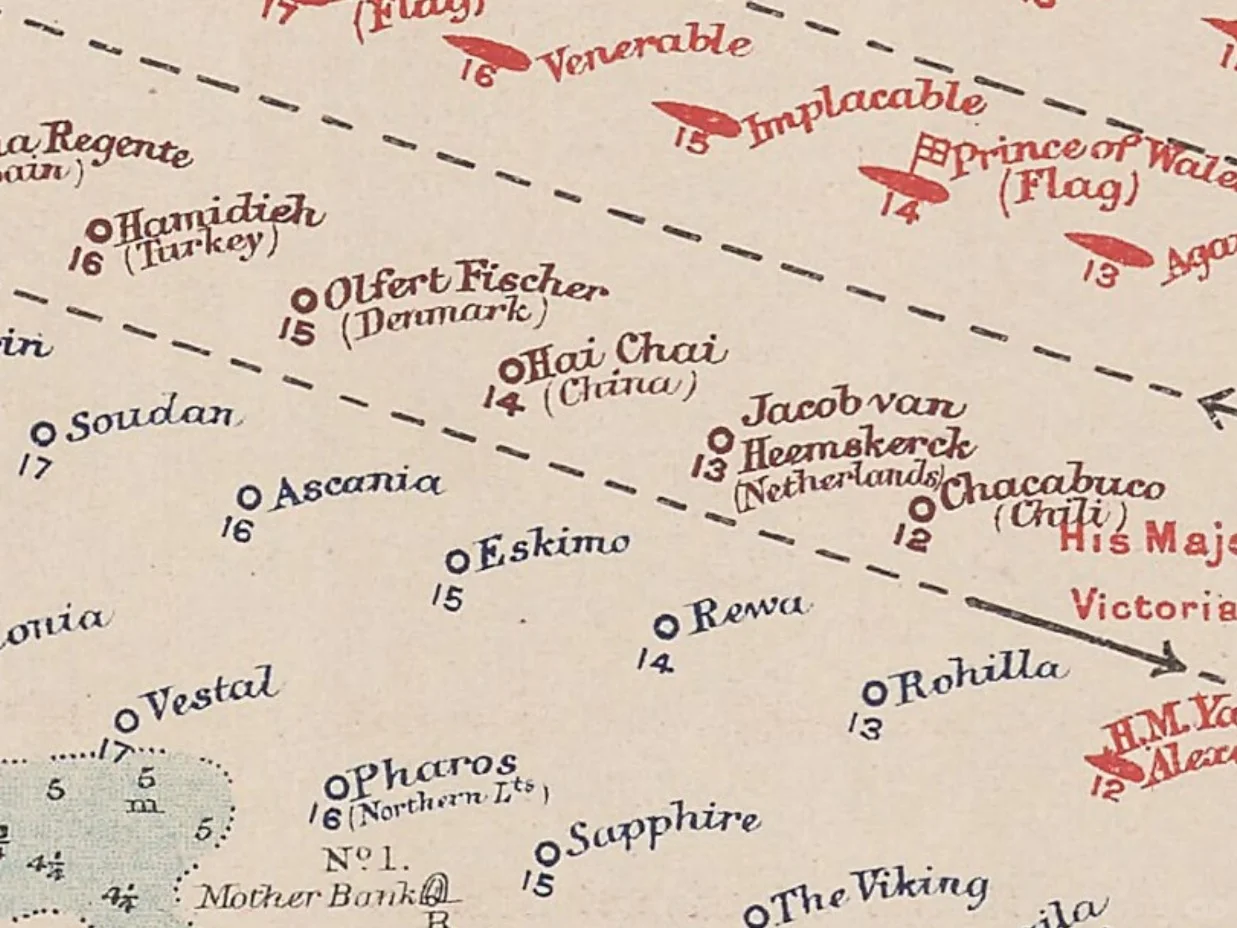 17
(Flag)
16
Venerable
15
Implacable
Prince of Wale
(Flag)
14
13
Aga
a Regente
ain)
Hamidieh
16 (Turkey)
Olfert Fischer
15 (Denmark)
Hai Chai
14 (China)
Jacob van
Heemskerck
13
(Netherlands)
Chacabuco
(Chili)
12
His Maje
Victoria
H.M. Ya
Alex
12
in
Soudan
17
Ascania
16
Eskimo
15
Rewa
14
Rohilla
13
onia
Vestal
17
Pharos
16 (Northern Lts)
Sapphire
15
The Viking
ila
5
5
m
5
4¼
4¼
No 1.
Mother Bank
B